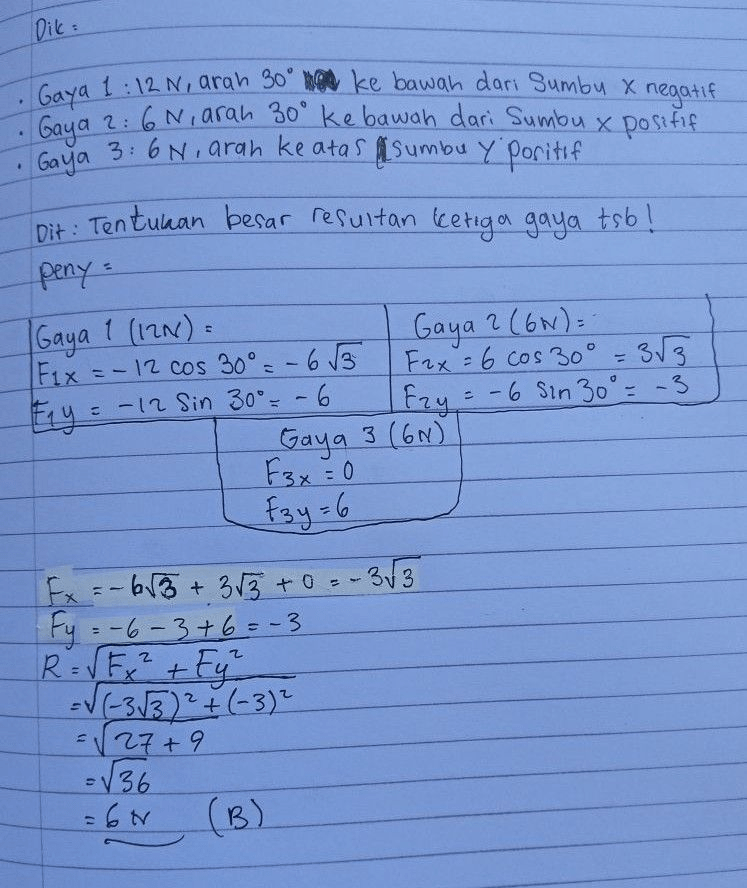 Dik :
• Gaya 1 : 12 N, arah 30° ke bawah dari Sumbu x negatif
• Gaya 2 : 6 N, arah 30° ke bawah dari Sumbu x positif
• Gaya 3 : 6 N, arah ke atas sumbu y poritif
Dit : Tentukan besar resultan ketiga gaya tsb!
peny =
Gaya 1 (12N) =
F1x = -12 cos 30° = -6√3
F1y = -12 Sin 30° = -6
Gaya 2 (6N) =
F2x = 6 cos 30° = 3√3
F2y = -6 Sin 30° = -3
Gaya 3 (6N)
F3x = 0
F3y = 6
Fx = -6√3 + 3√3 + 0 = -3√3
Fy = -6 - 3 + 6 = -3
R = √Fx² + Fy²
= √(-3√3)² + (-3)²
= √27 + 9
= √36
= 6 N (B)